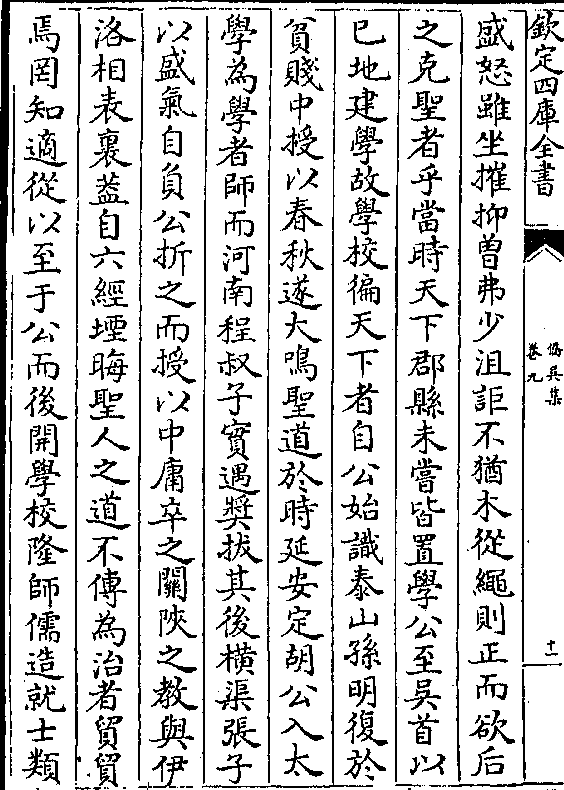 欽定四庫全書
僑吳集
卷九
十一
盛怒雖坐摧抑曽弗少沮詎不猶木從繩則正而欲后
之克聖者乎當時天下郡縣未嘗皆置學公至吳首以
已地建學故學校徧天下者自公始識泰山孫明復於
貧賤中授以春秋遂大鳴聖道於時延安定胡公入太
學為學者師而河南程叔子實遇奬拔其後横渠張子
以盛氣自負公折之而授以中庸卒之關陜之教與伊
洛相表裏葢自六經堙晦聖人之道不傳為治者貿貿
焉罔知適從以至于公而後開學校隆師儒造就士類